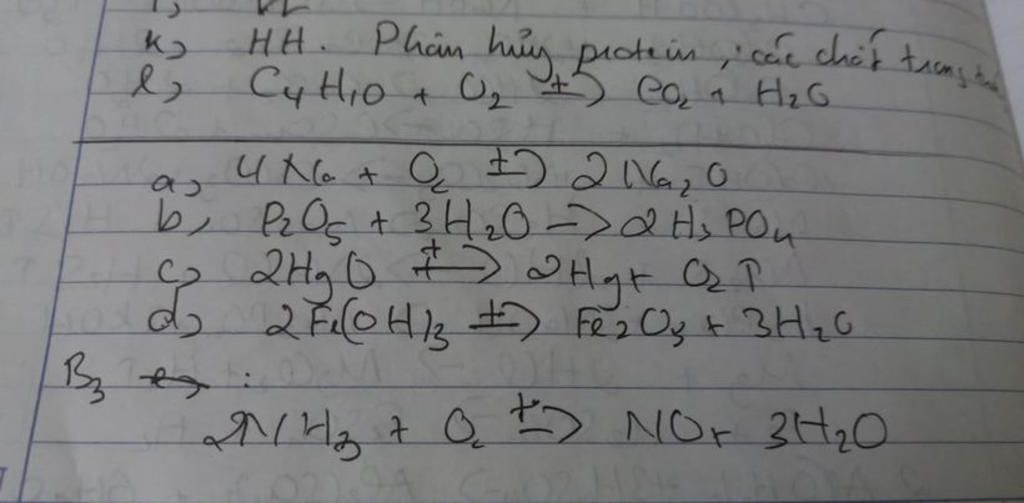 k, HH. Phân hủy protein, các chất trong
l, C4H10 + O2 t→ CO2 + H2O
a, 4Na + O2 t→ 2Na2O
b, P2O5 + 3H2O → 2H3PO4
c, 2HgO t→ 2Hg + O2 ↑
d, 2Fe(OH)3 t→ Fe2O3 + 3H2O
B3 :
2NH3 + O2 t→ NO + 3H2O